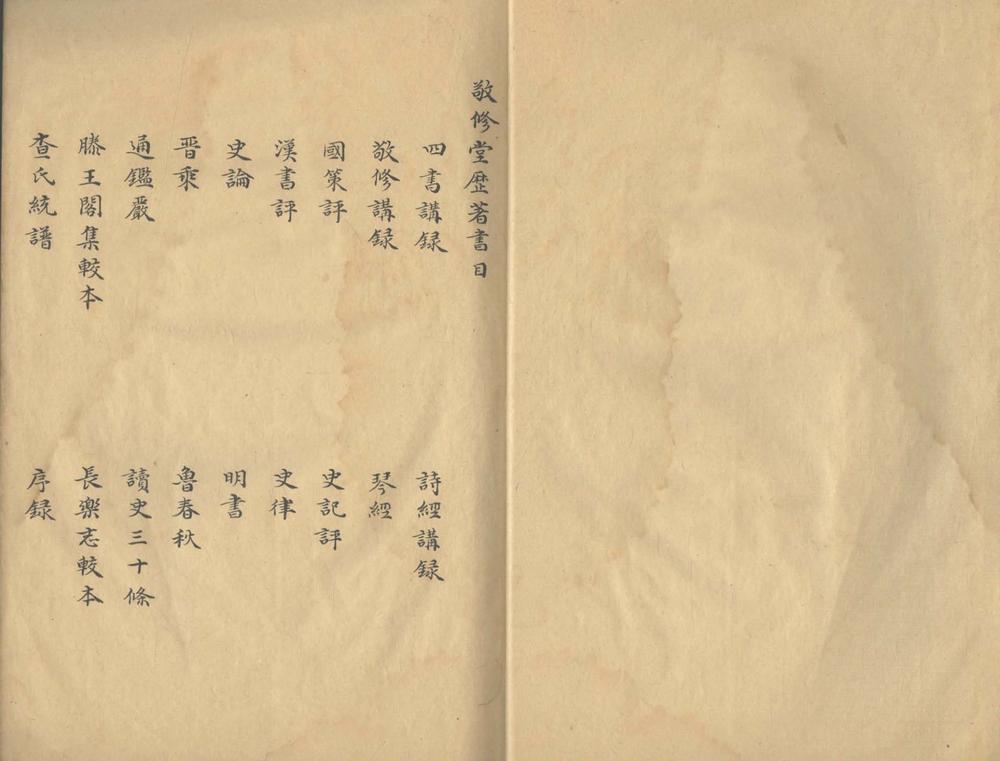 敬修堂歴著書目
四書講録
詩經講録
敬修講録
琴經
國策評
史記評
漢書評
史律
史論
明書
晋乘
魯春秋
通鑑嚴
讀史三十條
滕王閣集較本
長樂志較本
查氏統譜
序録